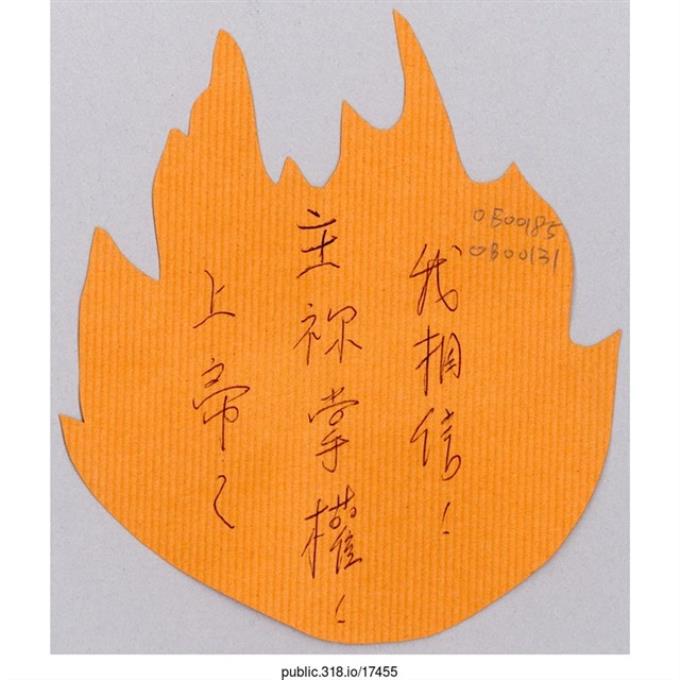 我相信！
主祢掌權！
上帝
0B00185
0B00131
public.318.io/17455